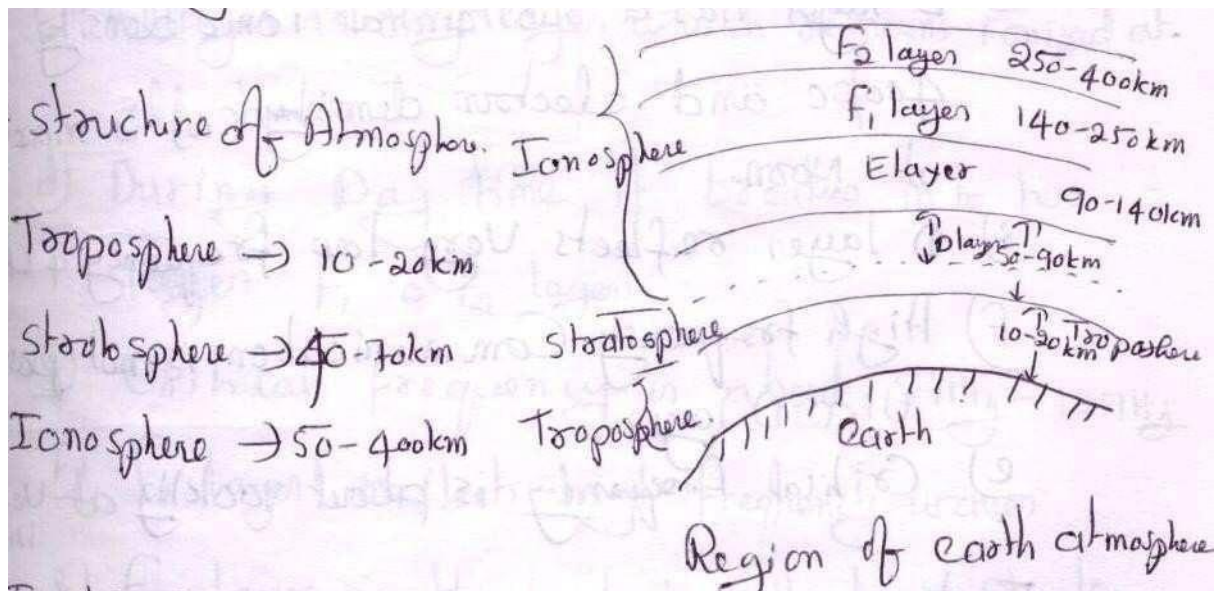 Structure of Atmosphere.
Troposphere → 10-20km
Stratosphere → 40-70km
Ionosphere → 50-400km
Ionosphere
F2 layer 250-400km
F1 layer 140-250km
E layer
90-140km
D layer
50-90km
Stratosphere
10-20km
Troposphere.
earth
Region of earth atmosphere